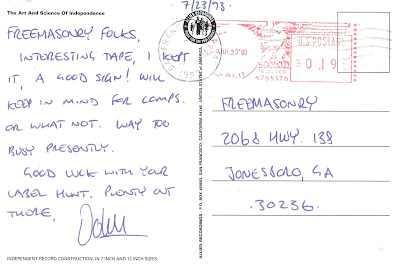 The Art And Science Of Independence
7/23/93
FREEMASONRY FOLKS,
INTERESTING TAPE, I KEPT
IT, A GOOD SIGN! WILL
KEEP IN MIND FOR COMPS.
OR WHAT NOT. WAY TOO
BUSY PRESENTLY.
GOOD LUCK WITH YOUR
LABEL HUNT. PLENTY OUT
THERE,
INDEPENDENT RECORD CONSTRUCTION. IN 7 INCH AND 12 INCH SIZES.
ALLIED RECORDINGS SAN FRANCISCO, CALIFORNIA 94146 UNITED STATES OF AMERICA
JUL 23 '93
U.S. POSTAGE
0.19
FREEMASONRY
2068 HWY. 138
JONESBORO, GA
30236.